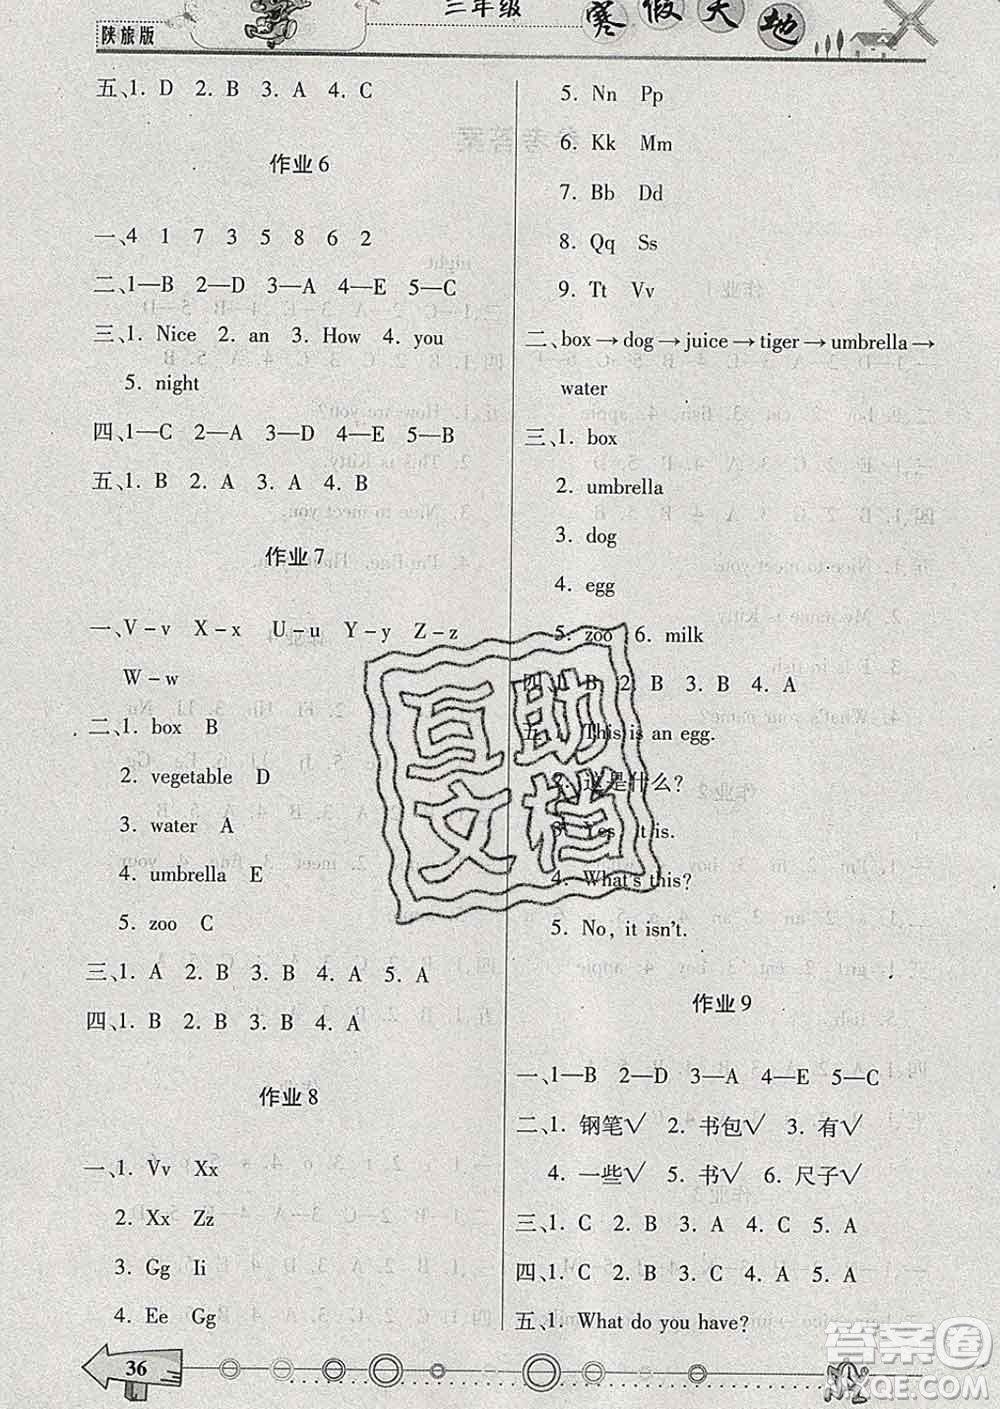 陕旅版
三年级
寒假天地
五、1. D 2. B 3. A 4. C
作业6
一、4 1 7 3 5 8 6 2
二、1—B 2—D 3—A 4—E 5—C
三、1. Nice 2. an 3. How 4. you
5. night
四、1—C 2—A 3—D 4—E 5—B
五、1. B 2. A 3. A 4. A 5. B
作业7
一、V－v X－x U－u Y－y Z－z
W－w
二、1. box B
2. vegetable D
3. water A
4. umbrella E
5. zoo C
三、1. A 2. B 3. B 4. A 5. A
四、1. B 2. B 3. B 4. A
作业8
一、1. Vv Xx
2. Xx Zz
3. Gg Ii
4. Ee Gg
5. Nn Pp
6. Kk Mm
7. Bb Dd
8. Qq Ss
9. Tt Vv
二、box→dog→juice→tiger→umbrella→
water
三、1. box
2. umbrella
3. dog
4. egg
5. zoo 6. milk
四、1. B 2. B 3. B 4. A
五、1. This is an egg.
2. 这是什么?
3. Yes, it is.
4. What's this?
5. No, it isn't.
作业9
一、1—B 2—D 3—A 4—E 5—C
二、1. 钢笔√ 2. 书包√ 3. 有√
4. 一些√ 5. 书√ 6. 尺子√
三、1. C 2. B 3. A 4. C 5. A
四、1. C 2. B 3. C 4. A 5. A
五、1. What do you have?
36
互助
文档
答案圈
MXQE.COM